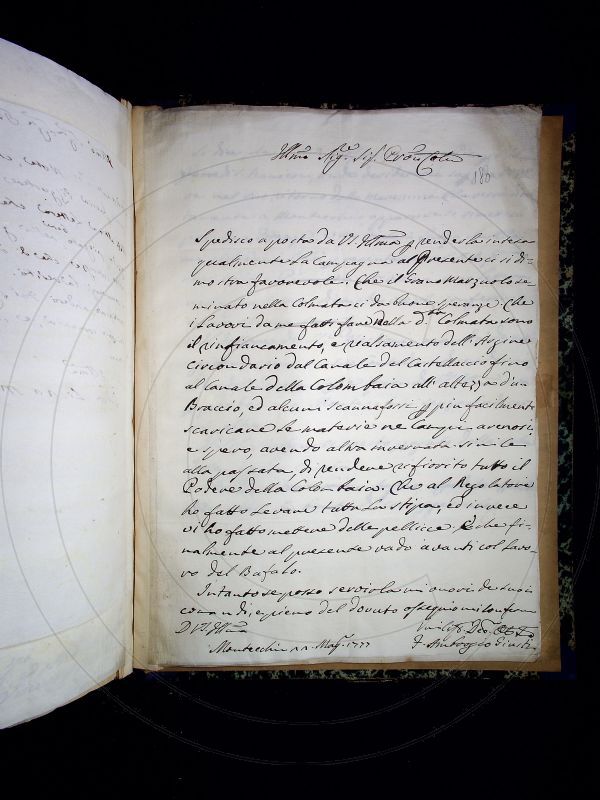 Ill.mo Sig.e Sig.
180
Spedisco a posta da VS Ill.ma p render la intesa
qualmente La Campagna al Presente ci si di-
mostra favorevole. Che il Grano Marzuolo se-
minato nella Colmata ci da buone speranze. Che
i Lavori da me fatti fare nella d.ta Colmata sono
il rinfiancamento, e rialsamento dell'Argine
circondario dal Canale del Castellaccio fino
al Canale della Colombaia all'altezza d'un
Braccio, ed alcuni scannafossi p piu facilmente
scaricare le materie ne Campi arenosi
e spero, avendo altra invernata simile
alla passata, di rendere rifiorito tutto il
Podere della Colombaia. Che al Regolatore
ho fatto Levare tutta La stipa, ed invece
vi ho fatto mettere delle pellicce e che fi-
nalmente al presente vado avanti col Lavo-
ro del Bufalo.
Intanto se posso servirla mi onori de suoi
comandi, e pieno del dovuto ossequio mi confermo
D VS Ill.ma
Montecchio Mag. 1777
F. Ambrogio Giusti